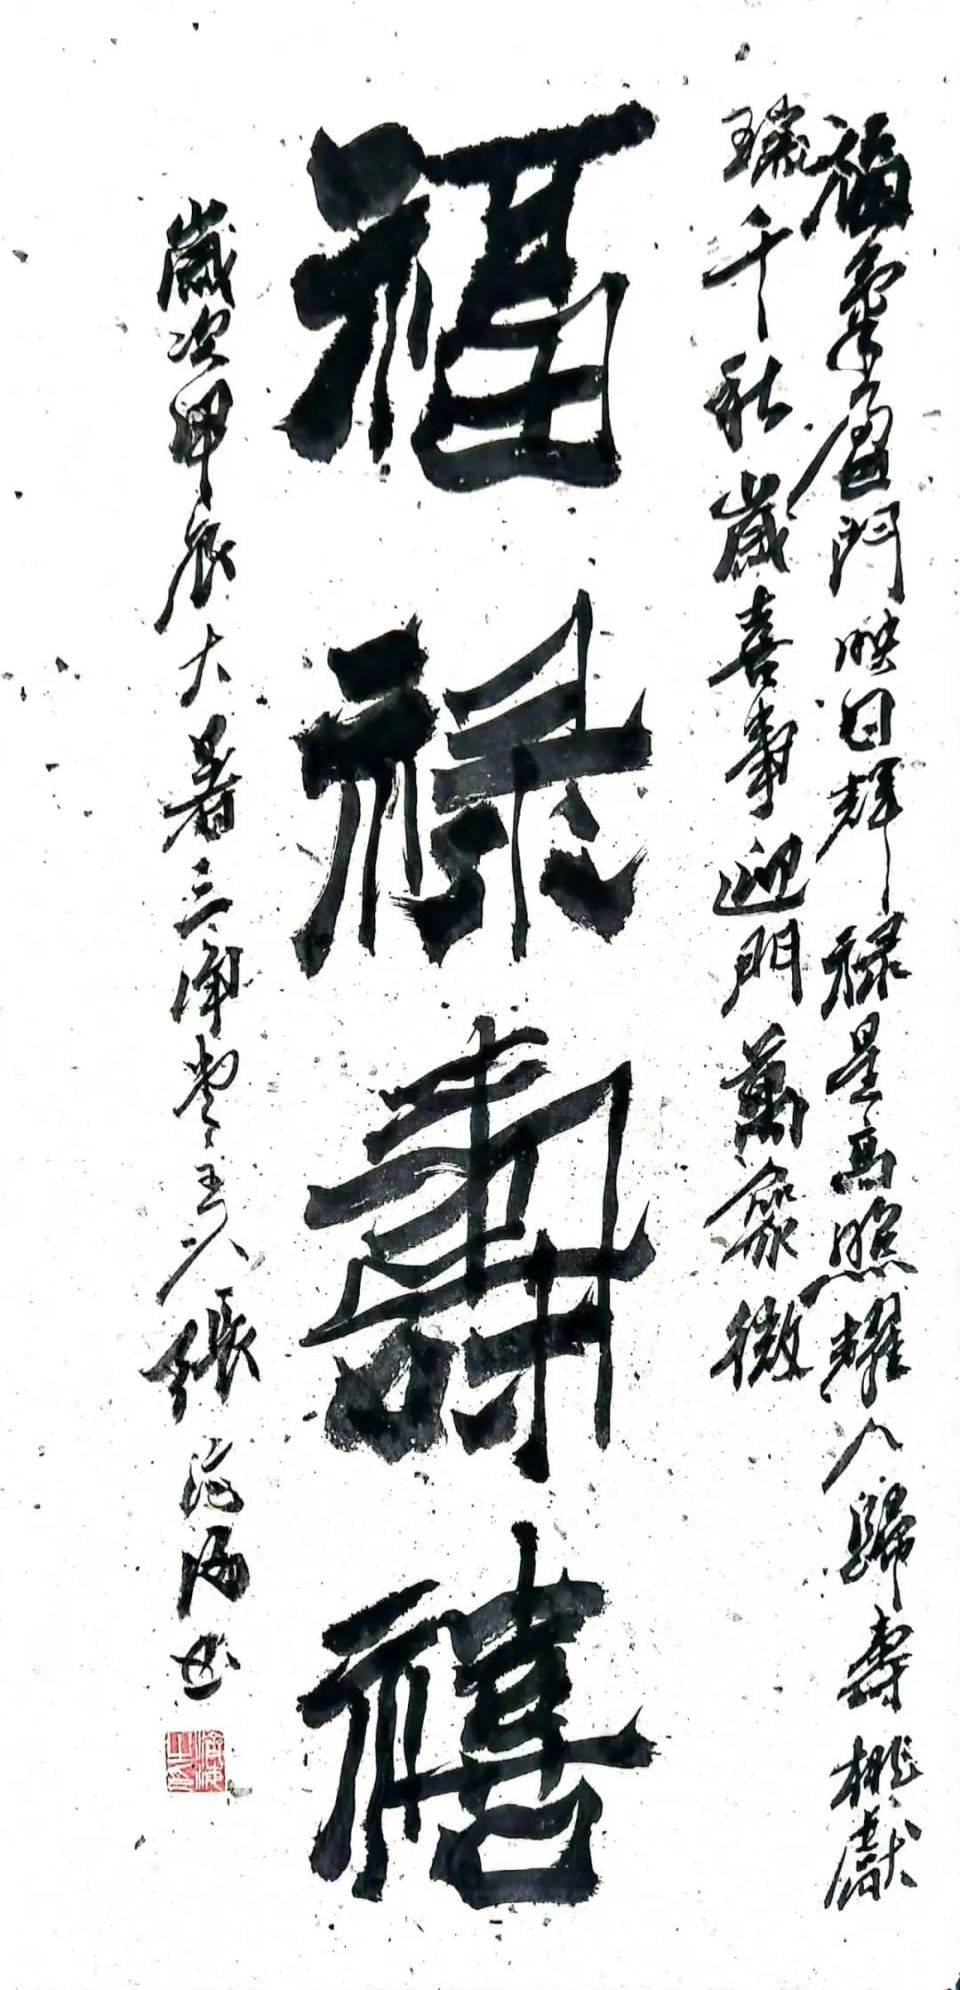 福氣盈門映日輝祿星高照耀人歸壽桃獻
瑞千秋歲喜事迎門萬象微
福祿壽禧
歲次甲辰大暑三滴堂主人張海书